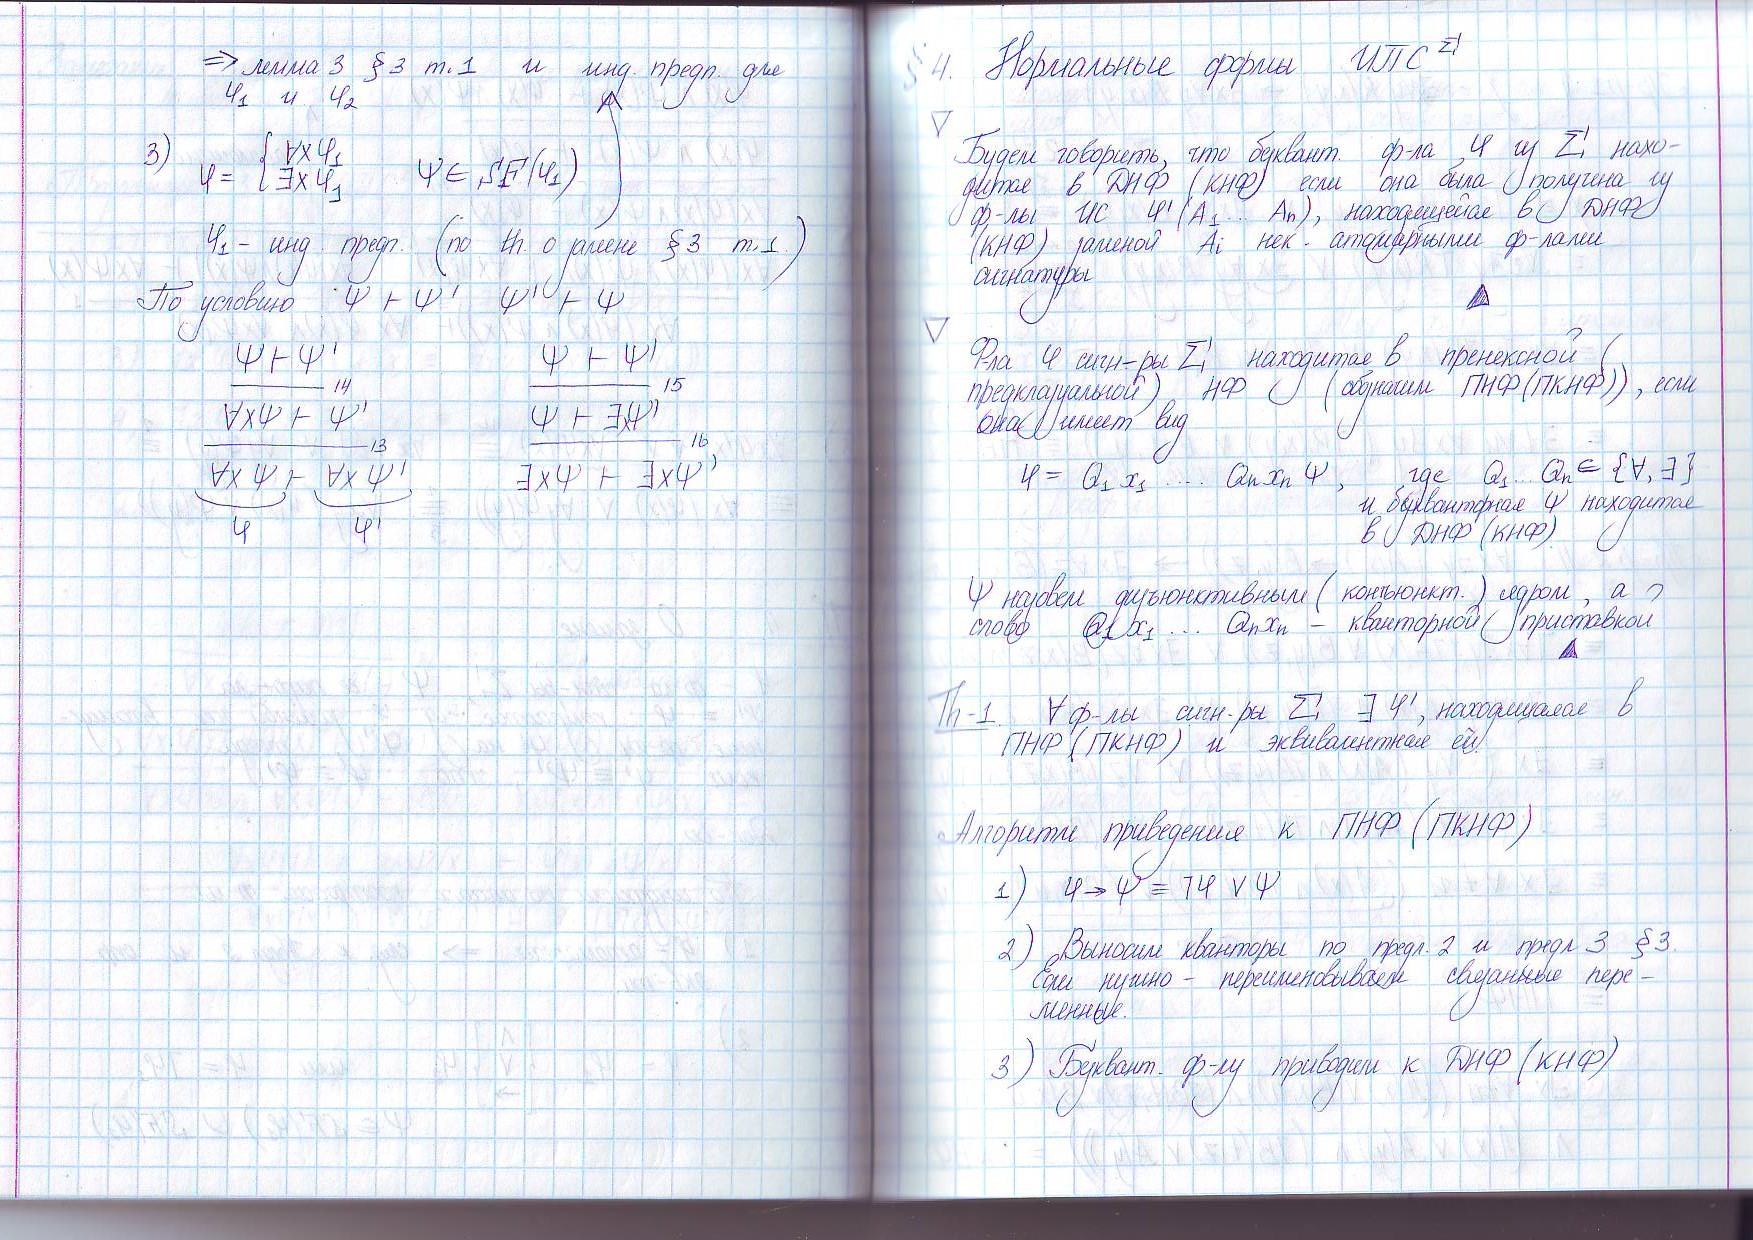 ⇒ лемма 3 §3 т.1 и инд. предп. для
φ₁ и φ₂
3) φ = { ∀xφ₁
∃xφ₁ ψ ∈ SF(φ₁)
φ₁ – инд. предп. (по th. о замене §3 т.1.)
По условию ψ ⊢ ψ' ψ' ⊢ ψ
ψ ⊢ ψ' ψ ⊢ ψ'
14 15
∀xψ ⊢ ψ' ψ ⊢ ∃xψ'
13 16
∀xψ ⊢ ∀xψ' ∃xψ ⊢ ∃xψ'
φ φ'
§4. Нормальные формы ИПС^Σ
▽
Будем говорить, что буквант. ф-ла φ из Σ нахо-
дится в ДНФ (КНФ) если она была получена из
ф-лы ИС φ'(A₁...Aₙ), находящейся в ДНФ
(КНФ) заменой Aᵢ нек. атомарными ф-лами
сигнатуры
▲
▽
Ф-ла φ сигн-ры Σ находится в пренексной (
предклаузальной) НФ (обозначим ПНФ(ПКНФ)), если
она имеет вид
φ = Q₁x₁ .... Qₙxₙψ, где Q₁...Qₙ ∈ {∀,∃}
и букванторная ψ находится
в ДНФ (КНФ)
ψ назовем дизъюнктивным (конъюнкт.) ядром, а
слово Q₁x₁ ... Qₙxₙ – кванторной приставкой
▲
Th-1. ∀ ф-лы сигн-ры Σ ∃ φ', находящаяся в
ПНФ (ПКНФ) и эквивалентная ей.
Алгоритм приведения к ПНФ (ПКНФ)
1) φ → ψ ≡ ¬φ ∨ ψ
2) Выносим кванторы по предл. 2 и предл 3 §3.
Если нужно – переименовываем связанные пере-
менные.
3) Буквант. ф-лу приводим к ДНФ (КНФ)